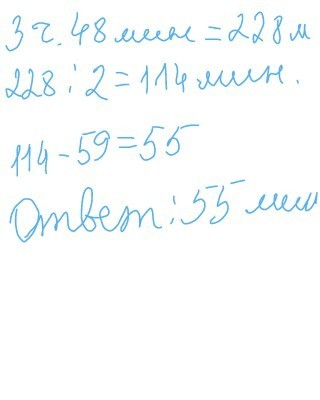 3 ч. 48 мин = 228 м
228 : 2 = 114 мин.
114 - 59 = 55
Ответ: 55 мин